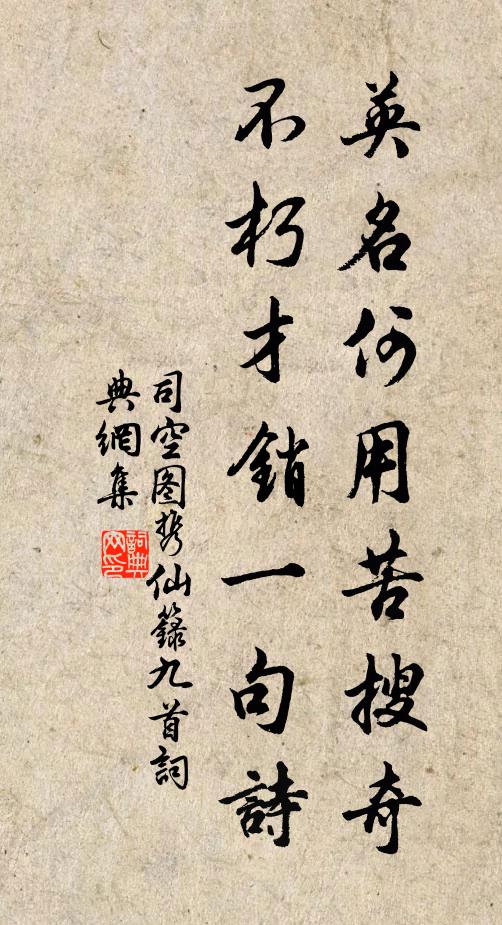 英名何用苦搜奇
不朽才銷一句詩
司空图携仙籙九首詞
典網集
詞典
网印